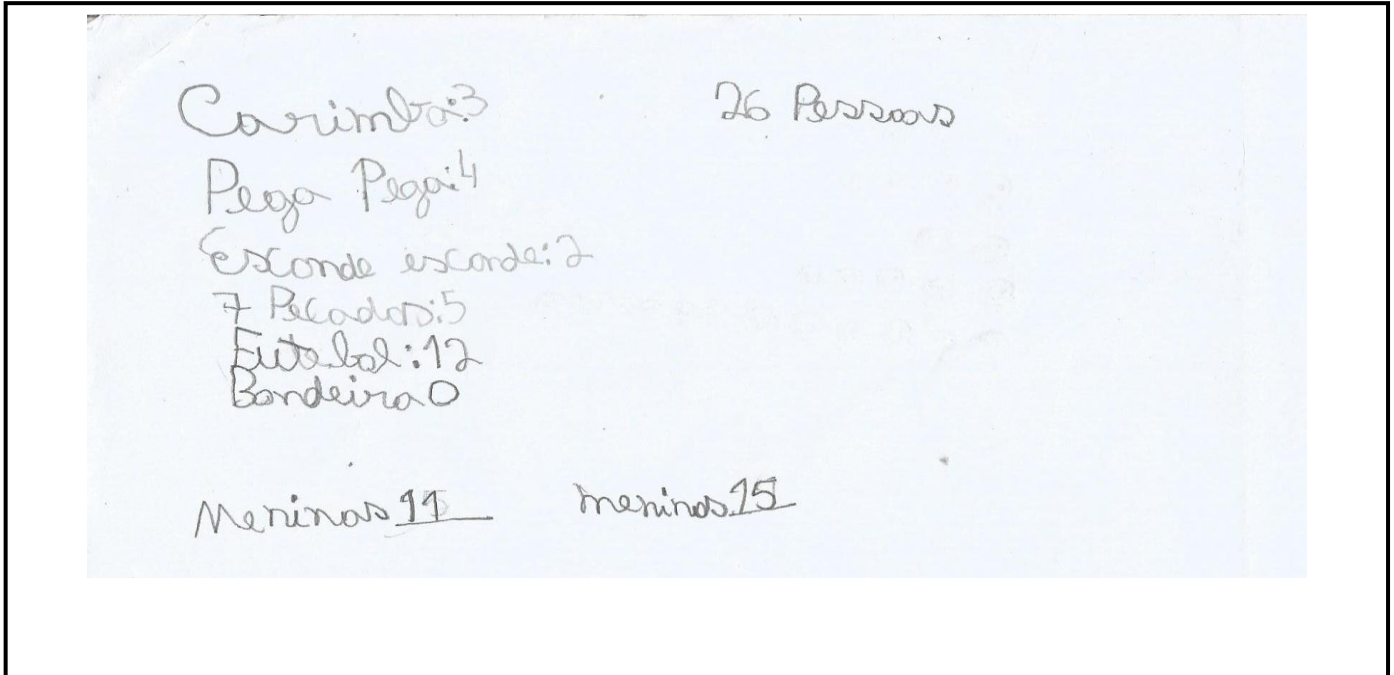 Carimba:3
26 Pessoas
Pega Pega:4
Esconde esconde:2
7 Pecados:5
Futebol:12
Bandeira 0
Meninas 11 meninos 15